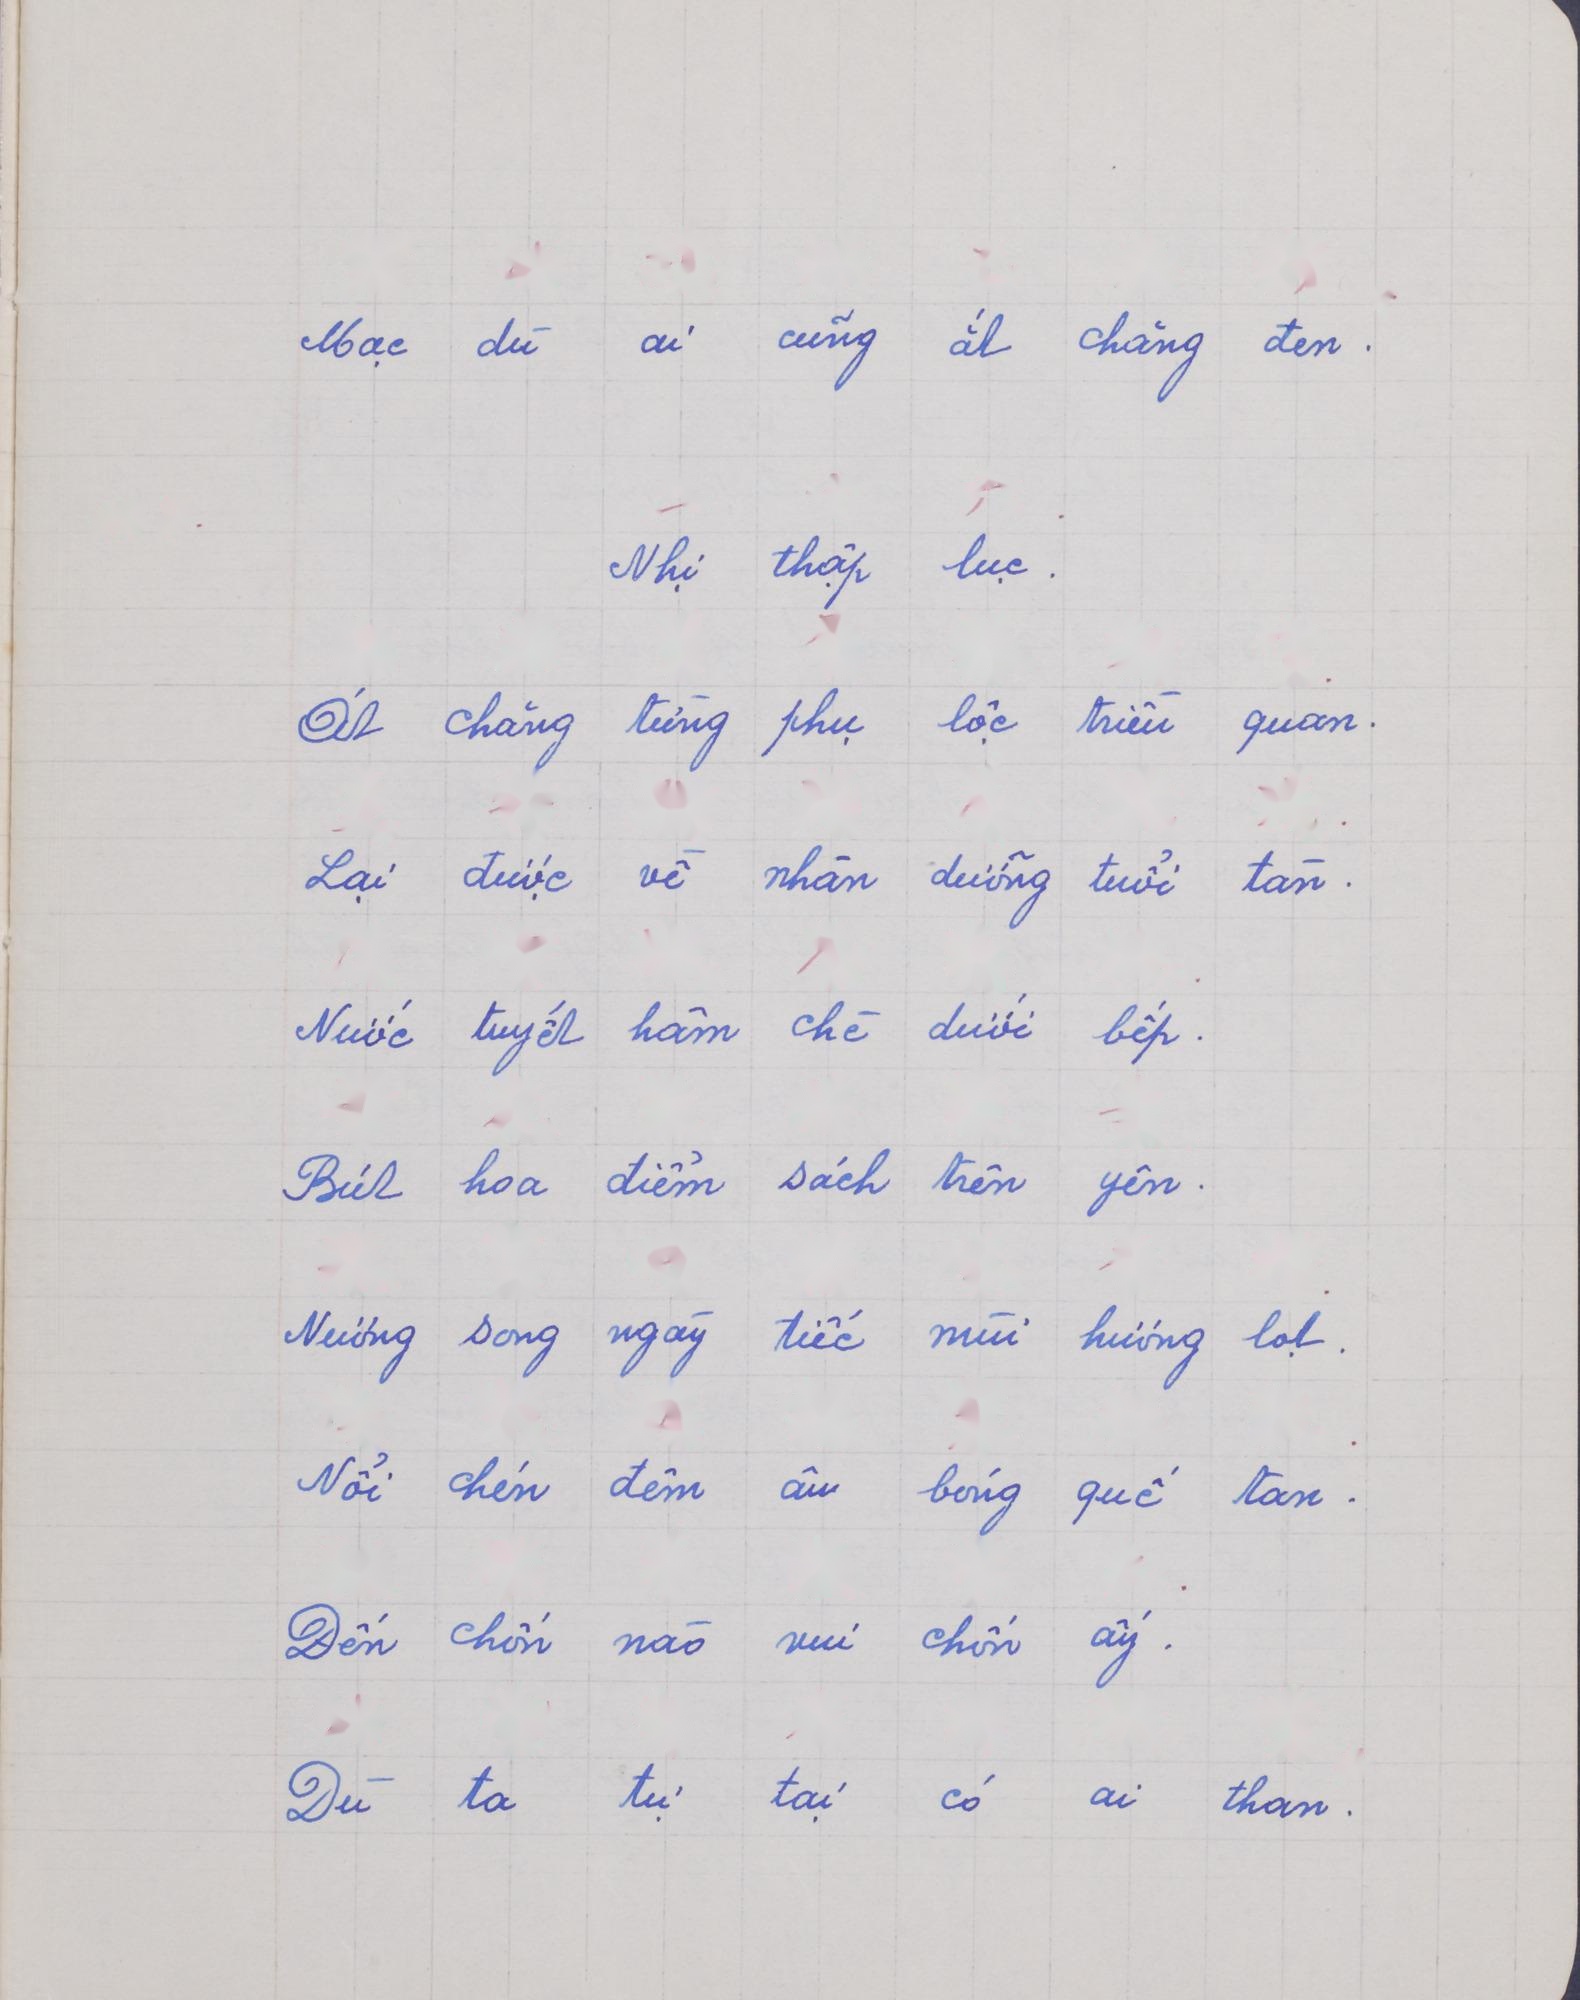 Mạc dù ai cũng ắt chăng đen.
Nhị thập lục.
Ất chăng từng phụ lộc triều quan.
Lại được về nhàn dưỡng tuổi tàn.
Nước tuyết hâm chè dưới bếp.
Bút hoa điểm sách trên yên.
Nương song ngày tiếc mùi hương lọt.
Nổi chén đêm âu bóng quế tan.
Đến chốn nào vui chốn ấy.
Dù ta tự tại có ai than.